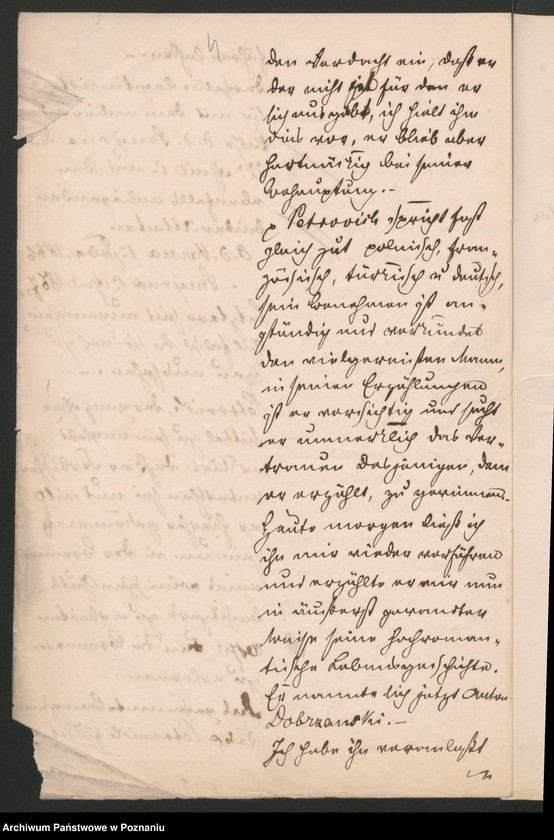 4
den Verdacht ein, daß er
der nicht sei für den er
sich ausgebe, ich hielt ihm
dies vor, er blieb aber
hartnäckig bei seiner
Behauptung.–
p Petrovich spricht fast
gleich gut polnisch, fran-
zösisch, türkisch u deutsch,
sein Benehmen ist an-
ständig und verkündet
den vielgereisten Mann,
in seinen Erzählungen
ist er vorsichtig und sucht
er unmerklich das Ver-
trauen desjenigen, dem
er erzählt, zu gewinnen.
Heute morgen ließ ich
ihn mir wieder vorführen
und erzählte er mir nun
in äußerst gewandter
Weise seine hochroman-
tische Lebensgeschichte.
Er nannte sich jetzt Anton
Dobrzanski.–
Ich habe ihn veranlaßt
Archiwum Państwowe w Poznaniu